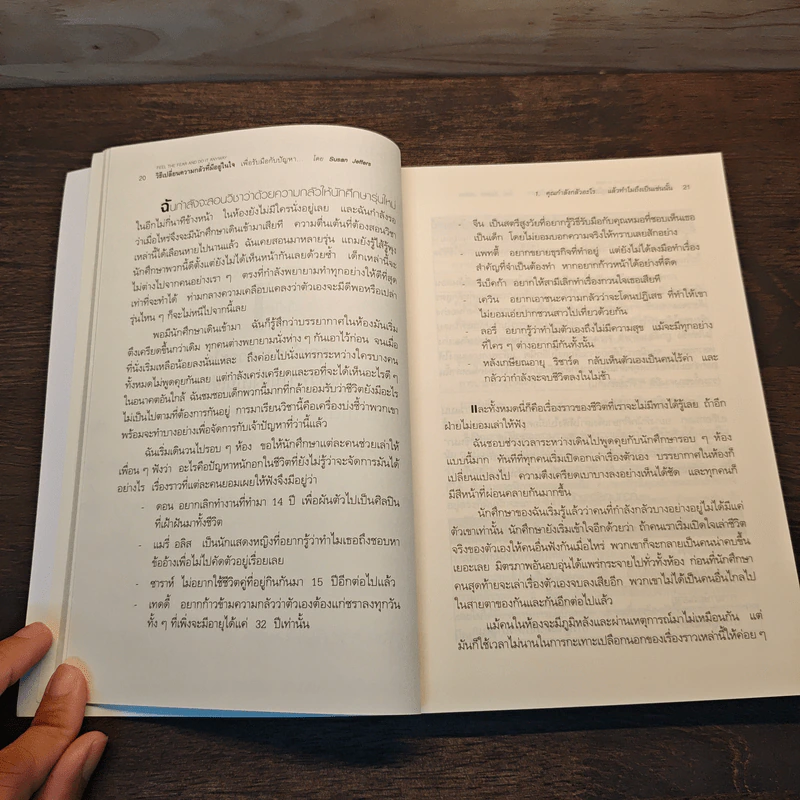 "FEEL THE FEAR AND DO IT ANYWAY"
20 วิธีเปลี่ยนความกลัวที่มีอยู่ในใจ เพื่อรับมือกับปัญหา โดย Susan Jeffers
ฉันกำลังจะสอนวิชาว่าด้วยความกลัวให้นักศึกษารุ่นใหม่
ในอีกไม่กี่นาทีข้างหน้า ในห้องยังไม่มีใครนั่งอยู่เลย และฉันกำลังรอ
ว่าเมื่อไหร่จึงจะมีนักศึกษาเดินเข้ามาเสียที ความตื่นเต้นที่ต้องสอนวิชา
เหล่านี้ได้เลือนหายไปนานแล้ว ฉันเคยสอนมาหลายรุ่น แถมยังรู้ไส้รู้พุง
นักศึกษาพวกนี้ดีตั้งแต่ยังไม่ได้เห็นหน้ากันเลยด้วยซ้ำ เด็กเหล่านี้จะ
ไม่ต่างไปจากคนอย่างเรา ๆ ตรงที่กำลังพยายามทำทุกอย่างให้ดีที่สุด
เท่าที่จะทำได้ ท่ามกลางความเคลือบแคลงว่าตัวเองจะมีดีพอหรือเปล่า
รุ่นไหน ๆ ก็จะไม่หนีไปจากนี้เลย
พอมีนักศึกษาเดินเข้ามา ฉันก็รู้สึกว่าบรรยากาศในห้องมันเริ่ม
ตึงเครียดขึ้นกว่าเดิม ทุกคนต่างพยายามนั่งห่าง ๆ กันเอาไว้ก่อน จนเมื่อ
ที่นั่งเริ่มเหลือน้อยลงนั่นแหละ ถึงค่อยไปนั่งแทรกระหว่างใครบางคน
ทั้งหมดไม่พูดคุยกันเลย แต่กำลังเคร่งเครียดและรอที่จะได้เห็นอะไรดี ๆ
ในอนาคตอันใกล้ ฉันชมชอบเด็กพวกนี้มากที่กล้ายอมรับว่าชีวิตยังมีอะไร
ไม่เป็นไปตามที่ต้องการกันอยู่ การมาเรียนวิชานี้คือเครื่องบ่งชี้ว่าพวกเขา
พร้อมจะทำบางอย่างเพื่อจัดการกับเจ้าปัญหาที่ว่านี้แล้ว
ฉันเริ่มเดินวนไปรอบ ๆ ห้อง ขอให้นักศึกษาแต่ละคนช่วยเล่าให้
เพื่อน ๆ ฟังว่า อะไรคือปัญหาหนักอกในชีวิตที่ยังไม่รู้ว่าจะจัดการมันได้
อย่างไร เรื่องราวที่แต่ละคนยอมเผยให้ฟังจึงมีอยู่ว่า
- ดอน อยากเลิกทำงานที่ทำมา 14 ปี เพื่อผันตัวไปเป็นศิลปิน
ที่เฝ้าฝันมาทั้งชีวิต
- แมรี่ อลิส เป็นนักแสดงหญิงที่อยากรู้ว่าทำไมเธอถึงชอบหา
ข้ออ้างเพื่อไม่ไปคัดตัวอยู่เรื่อยเลย
- ซาร่าห์ ไม่อยากใช้ชีวิตคู่ที่อยู่กินกันมา 15 ปีอีกต่อไปแล้ว
- เทดดี้ อยากก้าวข้ามความกลัวว่าตัวเองต้องแก่ชราลงทุกวัน
ทั้ง ๆ ที่เพิ่งจะมีอายุได้แค่ 32 ปีเท่านั้น
1. คุณกำลังกลัวอะไร แล้วทำไมถึงเป็นเช่นนั้น 21
- จีน เป็นสตรีสูงวัยที่อยากรู้วิธีรับมือกับคุณหมอที่ชอบเห็นเธอ
เป็นเด็ก โดยไม่ยอมบอกความจริงให้ทราบเลยสักอย่าง
- แพทตี้ อยากขยายธุรกิจที่ทำอยู่ แต่ยังไม่ได้ลงมือทำเรื่อง
สำคัญที่จำเป็นต้องทำ หากอยากก้าวหน้าได้อย่างที่คิด
- รีเบ็กก้า อยากให้สามีเลิกทำเรื่องกวนใจเธอเสียที
- เควิน อยากเอาชนะความกลัวว่าจะโดนปฏิเสธ ที่ทำให้เขา
ไม่ยอมเอ่ยปากชวนสาวไปเที่ยวด้วยกัน
- ลอรี่ อยากรู้ว่าทำไมตัวเองถึงไม่มีความสุข แม้จะมีทุกอย่าง
ที่ใคร ๆ ต่างอยากมีกันทั้งนั้น
- หลังเกษียณอายุ ริชาร์ด กลับเห็นตัวเองเป็นคนไร้ค่า และ
กลัวว่ากำลังจะจบชีวิตลงในไม่ช้า
และทั้งหมดนี่ก็คือเรื่องราวของชีวิตที่เราจะไม่มีทางได้รู้เลย ถ้าอีก
ฝ่ายไม่ยอมเล่าให้ฟัง
ฉันชอบช่วงเวลาระหว่างเดินไปพูดคุยกับนักศึกษารอบ ๆ ห้อง
แบบนี้มาก ทันทีที่ทุกคนเริ่มเปิดอกเล่าเรื่องตัวเอง บรรยากาศในห้องก็
เปลี่ยนแปลงไป ความตึงเครียดเบาบางลงอย่างเห็นได้ชัด และทุกคนก็
มีสีหน้าที่ผ่อนคลายกันมากขึ้น
นักศึกษาของฉันเริ่มรู้แล้วว่าคนที่กำลังกลัวบางอย่างอยู่ไม่ได้มีแค่
ตัวเขาเท่านั้น นักศึกษายังเริ่มเข้าใจอีกด้วยว่า ถ้าคนเราเริ่มเปิดใจเล่าชีวิต
จริงของตัวเองให้คนอื่นฟังกันเมื่อไหร่ พวกเขาก็จะกลายเป็นคนน่าคบขึ้น
เยอะเลย มิตรภาพอันอบอุ่นได้แพร่กระจายไปทั่วทั้งห้อง ก่อนที่นักศึกษา
คนสุดท้ายจะเล่าเรื่องตัวเองจบลงเสียอีก พวกเขาไม่ได้เป็นคนอื่นไกลไป
ในสายตาของกันและกันอีกต่อไปแล้ว
แม้คนในห้องจะมีภูมิหลังและผ่านเหตุการณ์มาไม่เหมือนกัน แต่
มันก็ใช้เวลาไม่นานในการกะเทาะเปลือกนอกของเรื่องราวเหล่านี้ให้ค่อย ๆ